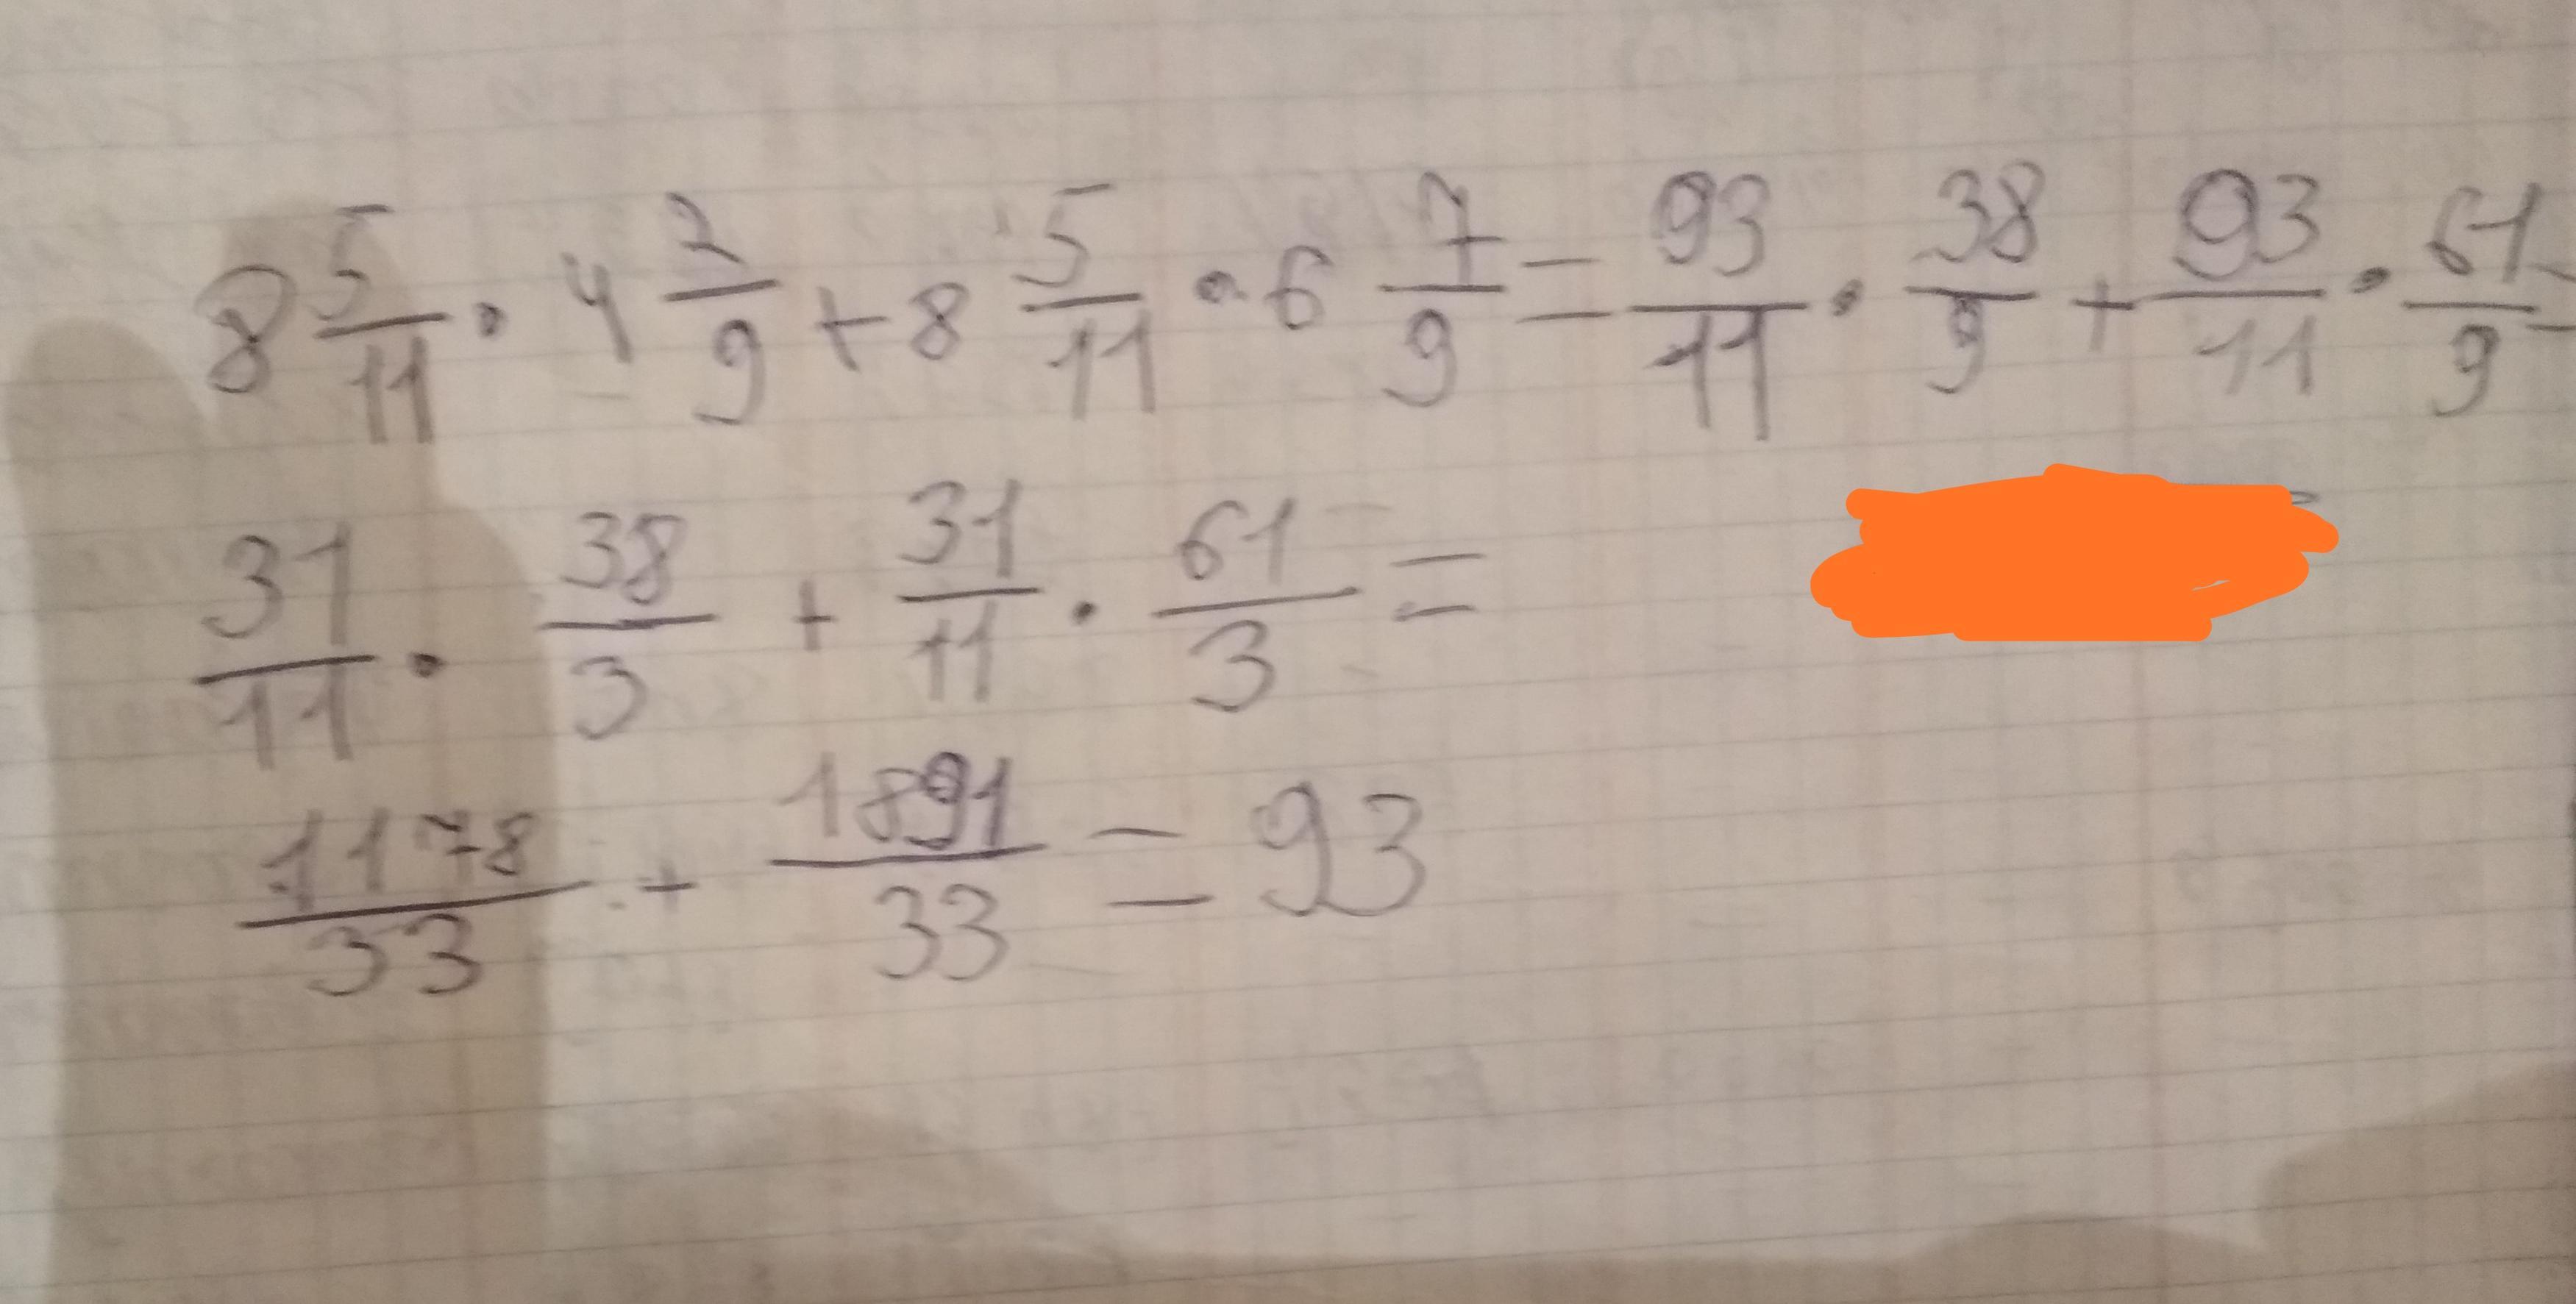 8 5/11 · 4 2/9 + 8 5/11 · 6 7/9 = 93/11 · 38/9 + 93/11 · 61/9 =
31/11 · 38/3 + 31/11 · 61/3 =
1178/33 + 1891/33 = 93